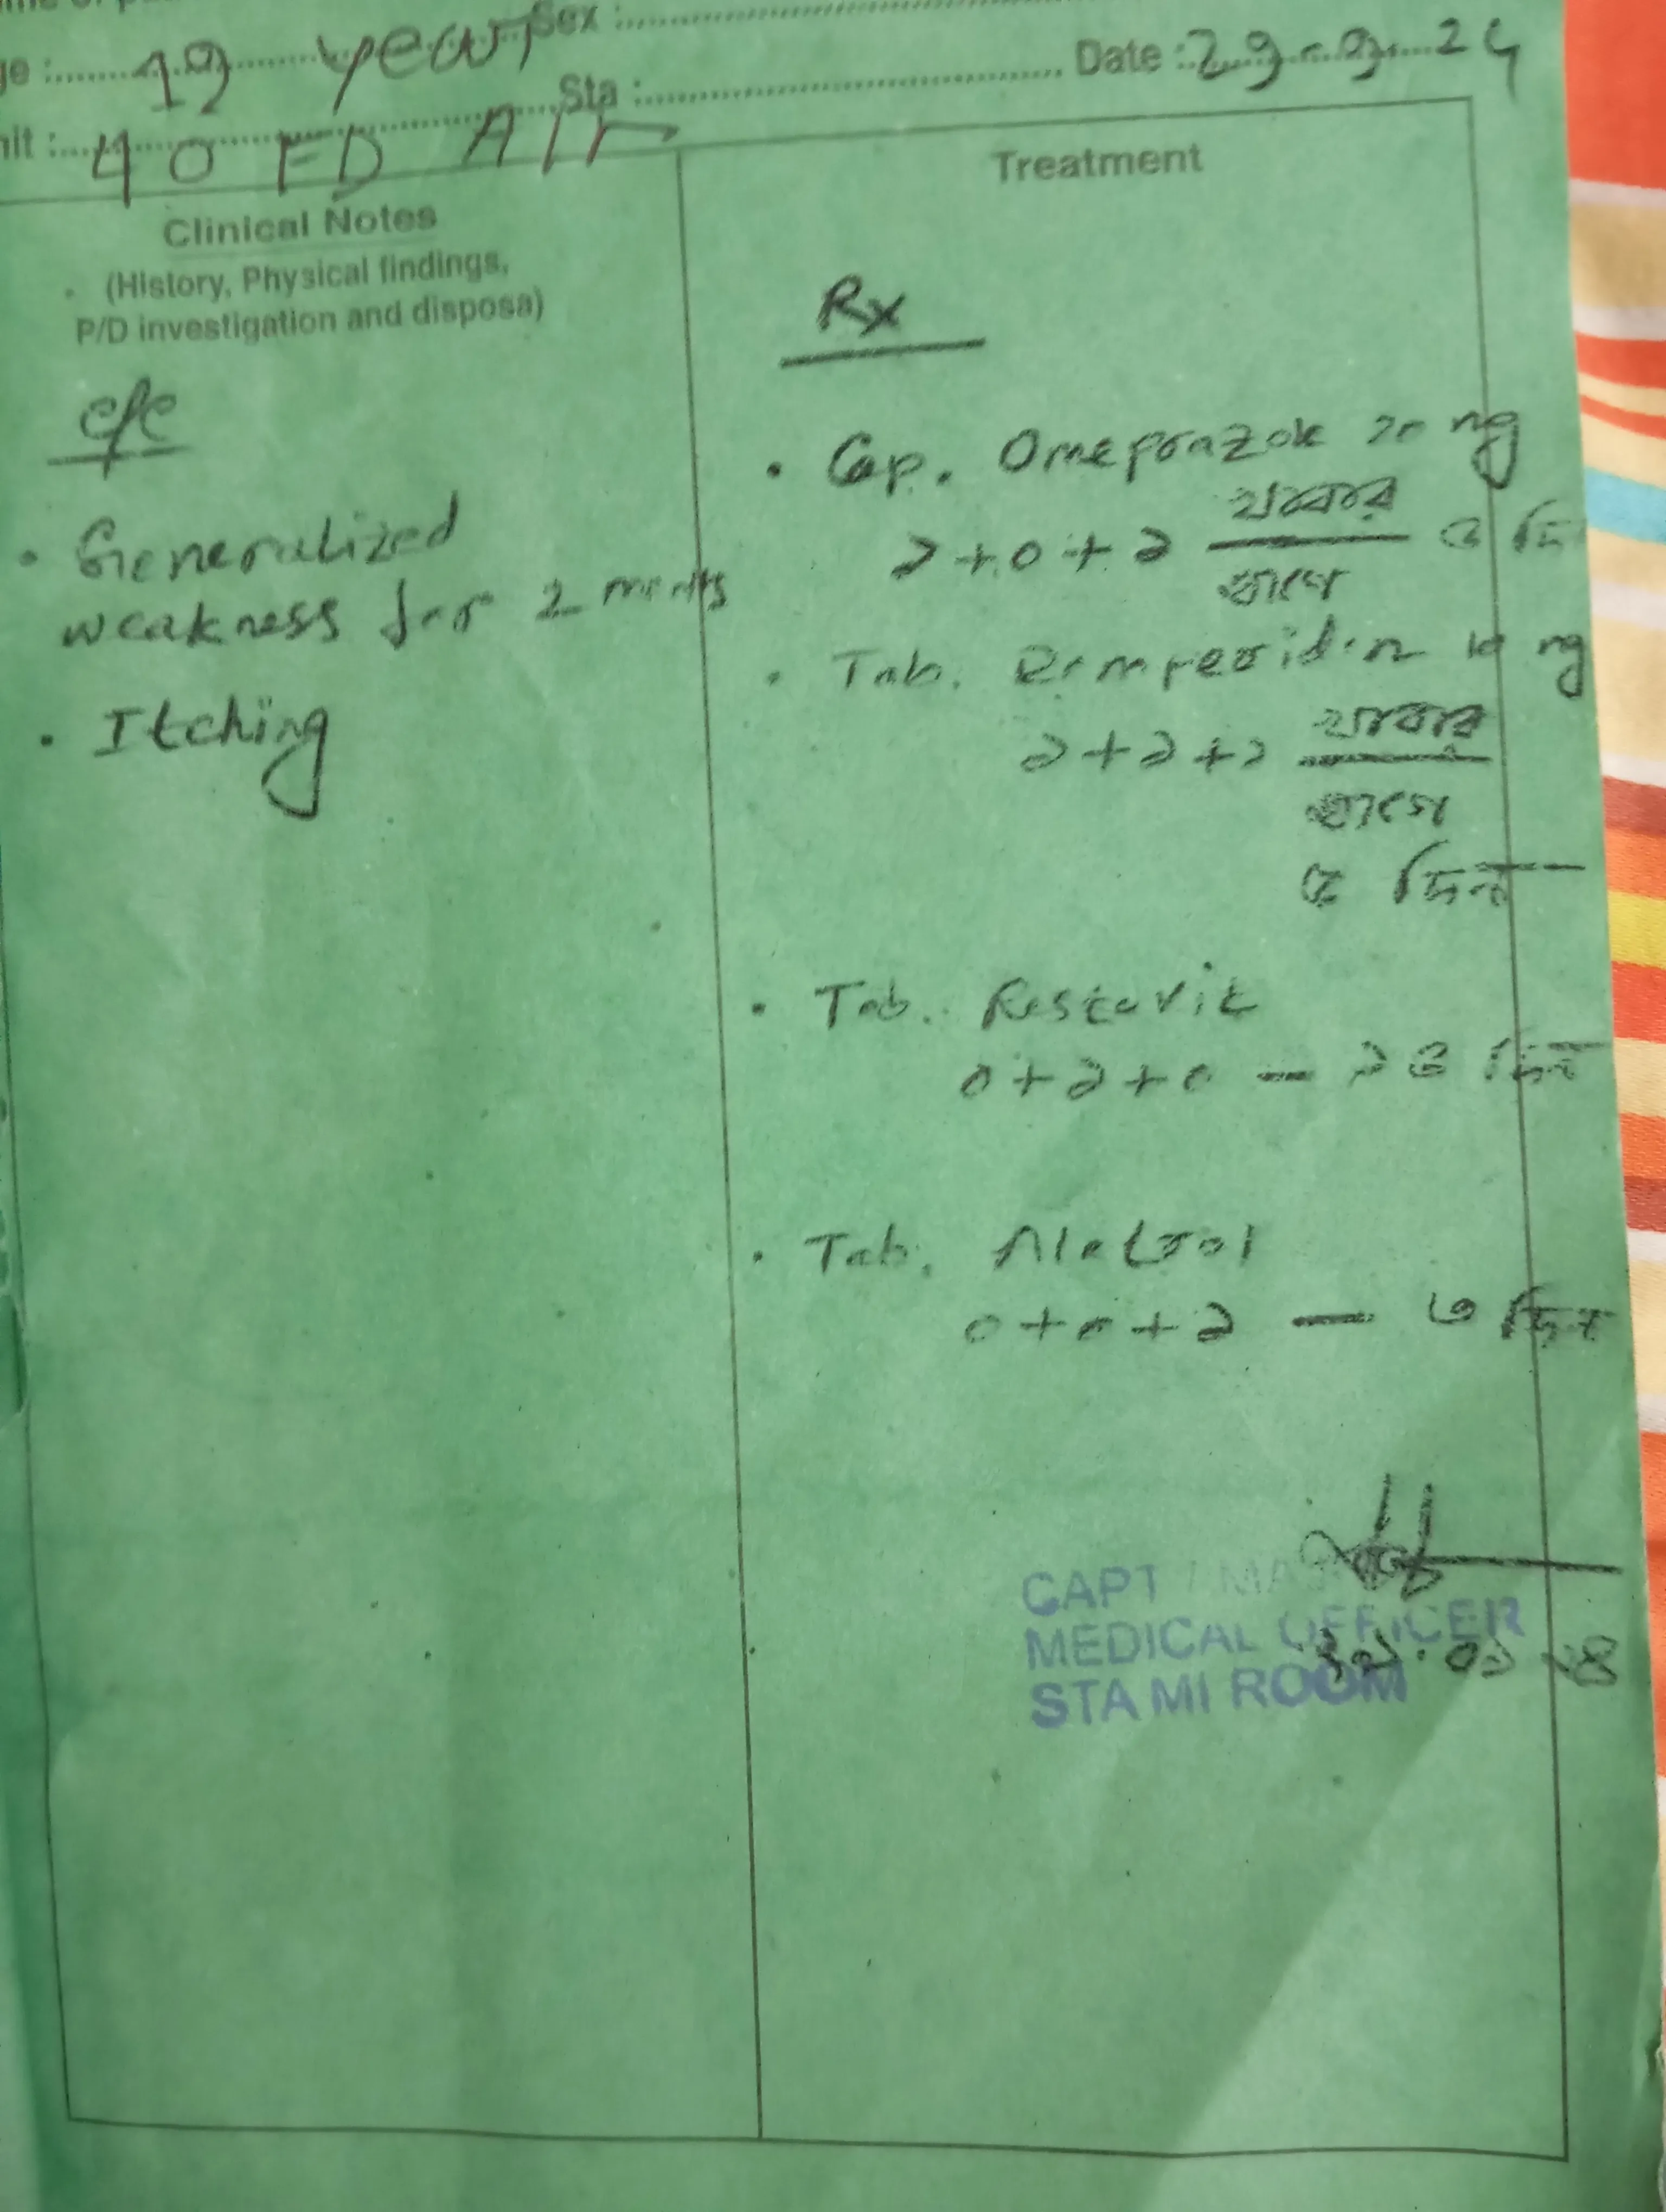 Sex :
ge : 19 year
Date : 29-9-24
Sta :
nit : 40 FD
Clinical Notes
(History, Physical findings,
P/D investigation and disposa)
Treatment
Rx
c/c
• Generalized
weakness for 2 months
• Itching
• Cap. Omeprazole 20 mg
১+০+১ খাবার
আগে
• Tab. Domperidon 10 mg
১+১+১ খাবার
আগে
দিন
• Tab. Restovit
০+১+০ — দিন
• Tab. Alatrol
০+০+১ — দিন
CAPT
MEDICAL OFFICER
STA MI ROOM